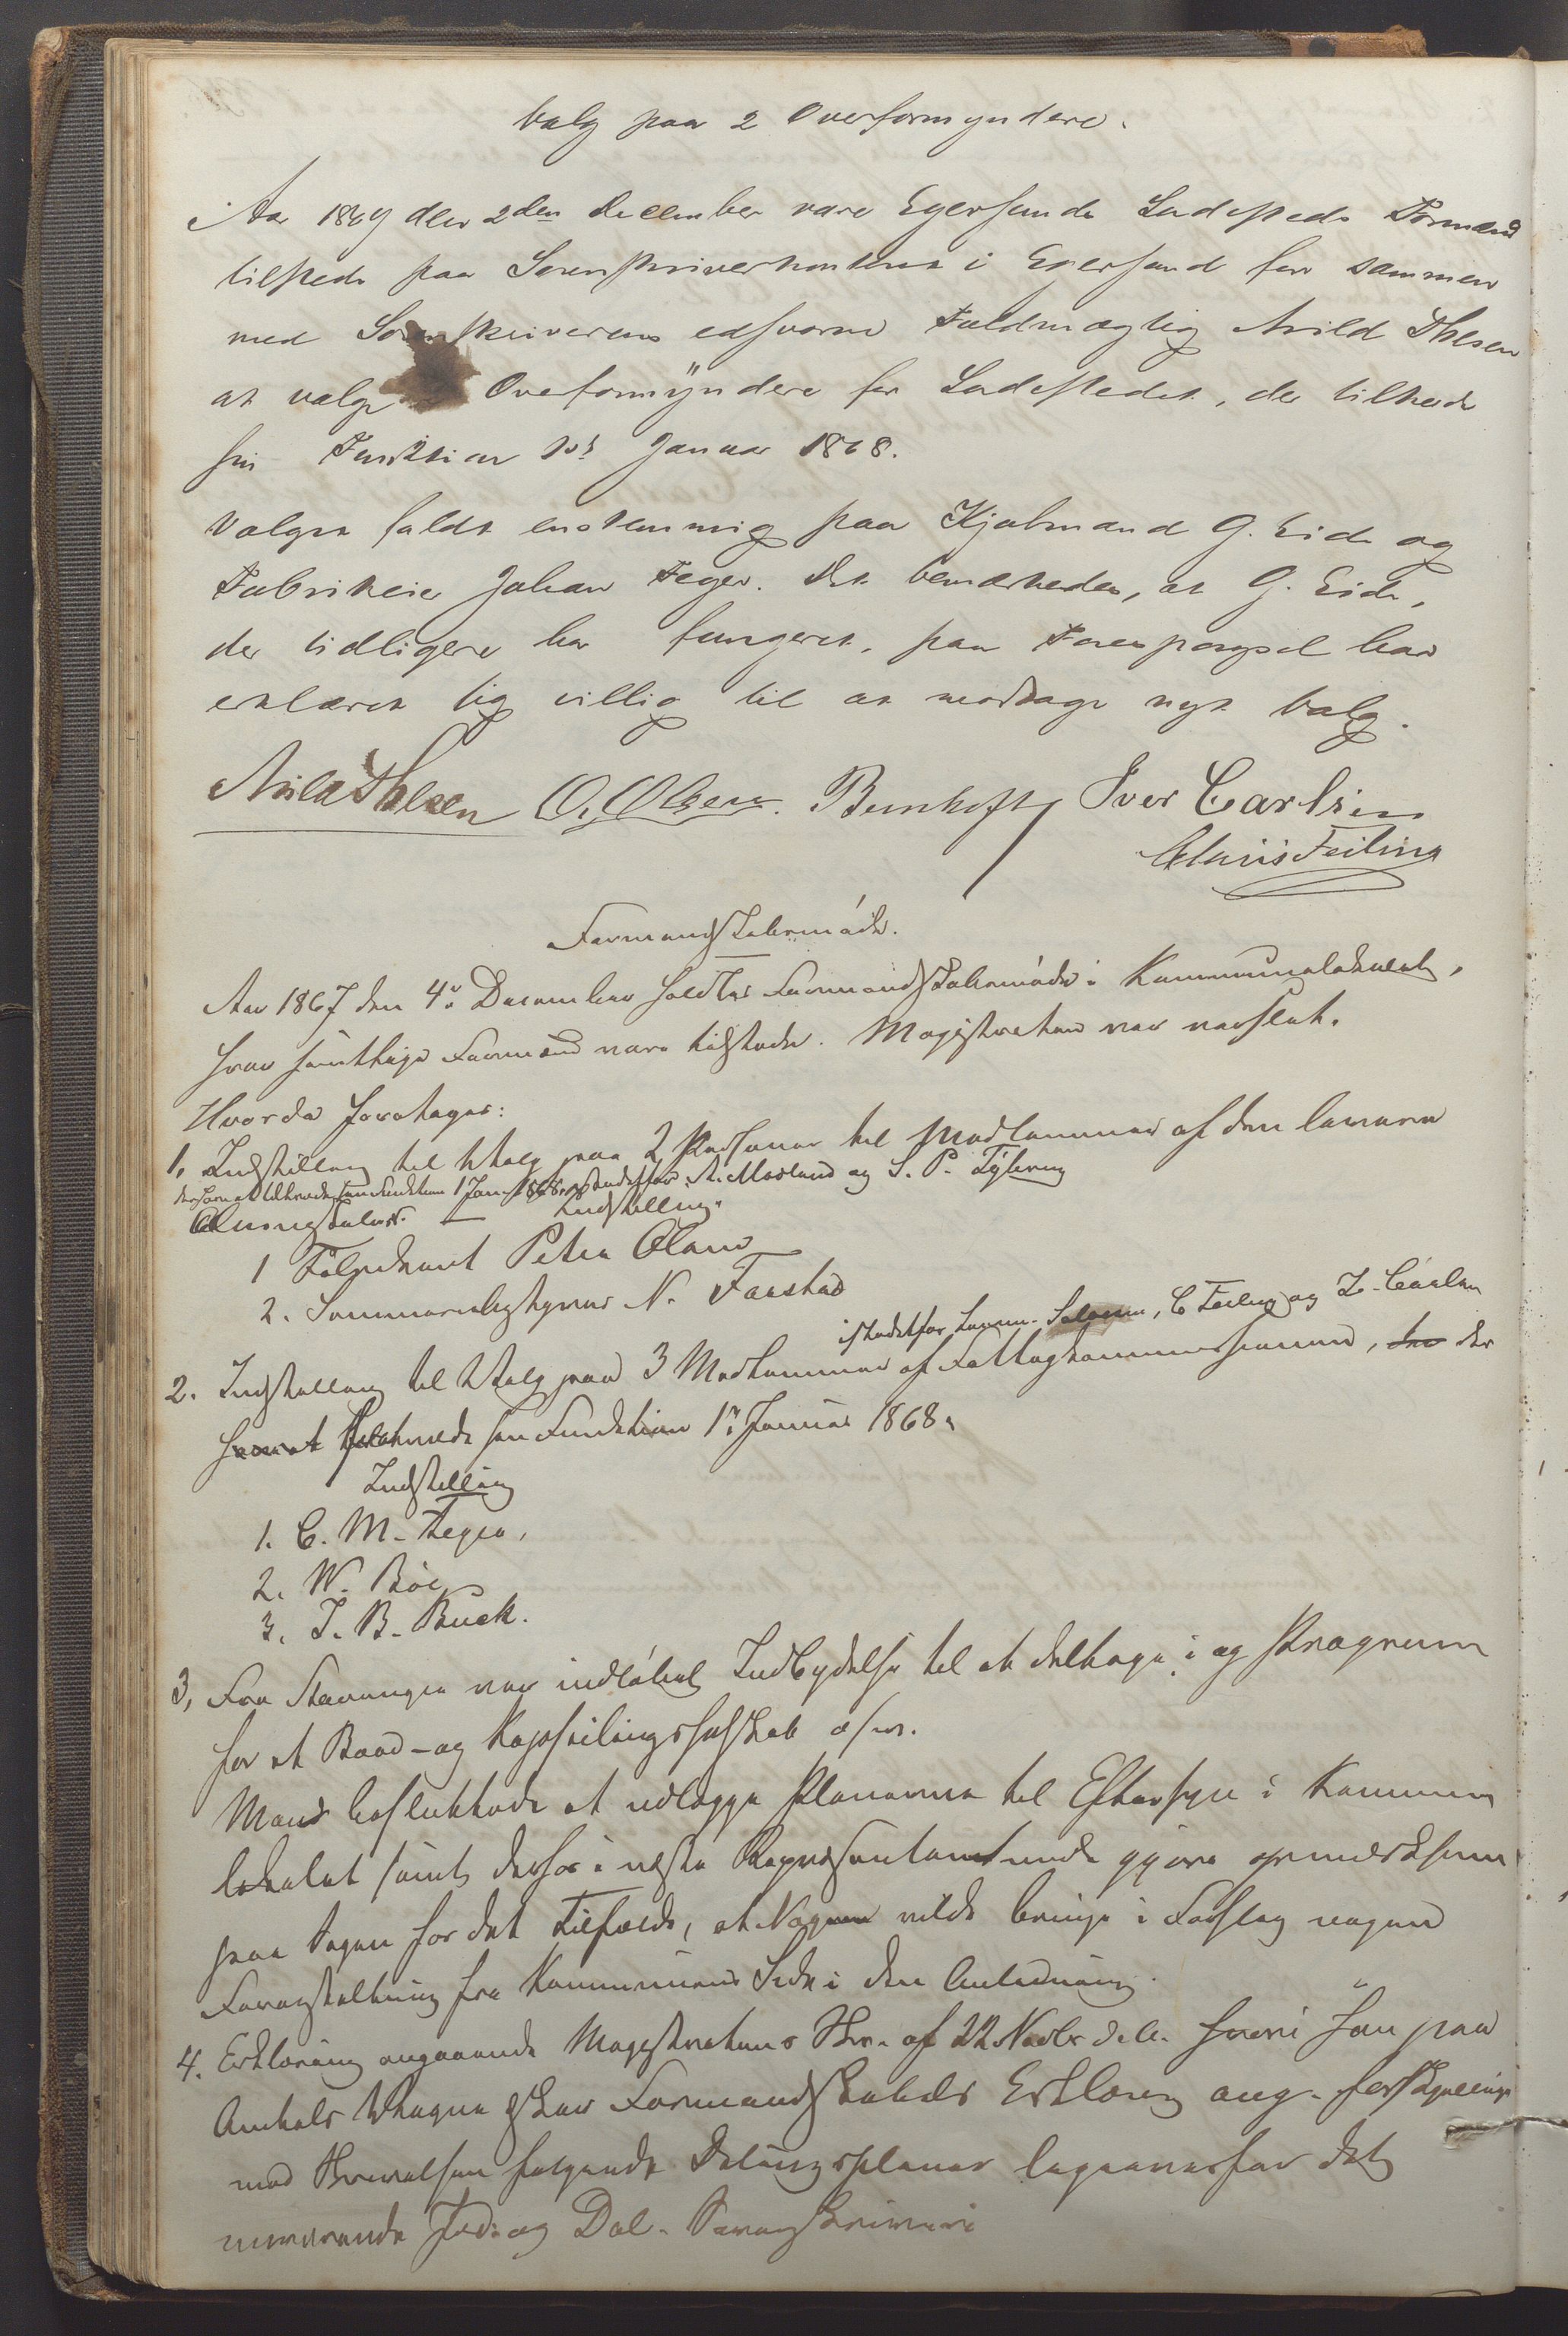 Valg paa 2 Overformyndere.
Aar 1867 den 2den December vare Egersunds Ladesteds Formænd
tilstede paa Sorenskriverkontoret i Egersund for sammen
med Sorenskriverens edsvorne Fuldmægtig Arild Thesen
at vælge Overformÿndere for Ladestedet, der tiltræde
sin Funktion 1st Januar 1868.
Valget faldt enstemmig paa Kjøbmand G. Eide og
Fabrikeier Johan Feyer. Det bemærkedes, at G. Eide,
der tidligere har fungeret, paa Forespørgsel har
erklæret sig villig til at modtage nyt Valg.
Arild Thesen O. Olsen. Bernhoft Iver Carlsen
Chris Feiling
Formandskabsmöde.
Aar 1867 den 4de December holdtes Formandskabsmöde i Kommunelokalet,
hvor samtlige Formænd vare tilstede. Magistraten var varslet.
Hvorda foretoges:
1. Indstilling til Valg paa 2 Personer til Medlemmer af den lærere
derfor at tiltræde sin Funktion 1 Jan. 1868 istedetfor A. Mosland og S. P. Tÿbring
Indstilling.
1 Peter Olsen
2. N. Faastad
istedetfor C Feiling og I. Carlsen
2. Indstilling til Valg paa 3 Medlemmer af Fattigkommissionen, der
sin Funktion 1ste Januar 1868.
Indstilling
1. C. M. Feyer,
2. W. Böe
3. J. B. Buck.
3, Fra Stavanger var indlöbet Indbydelse til at deltage i og Program
for et Baad- og Kapseilingsselskab osv.
Man besluttede at udlægge Planerne til Eftersyn i Kommune
lokalet samt derfor i næste Repræsentantmöde gjöre opmærksom
paa Sagen for det Tilfælde, at Nogen vilde bringe i Forslag nogen
Foranstaltning fra Kommunens Side i den Anledning.
4. Erklæring angaaende Magistratens Skr. af 22 Novbr d. A. hvori han paa
Amtets Vegne ösker Formandskabets Erklæring ang.
med Skrivelsen fölgende Delingsplaner
nuværende Jed. og Dal. Sorenskriveri